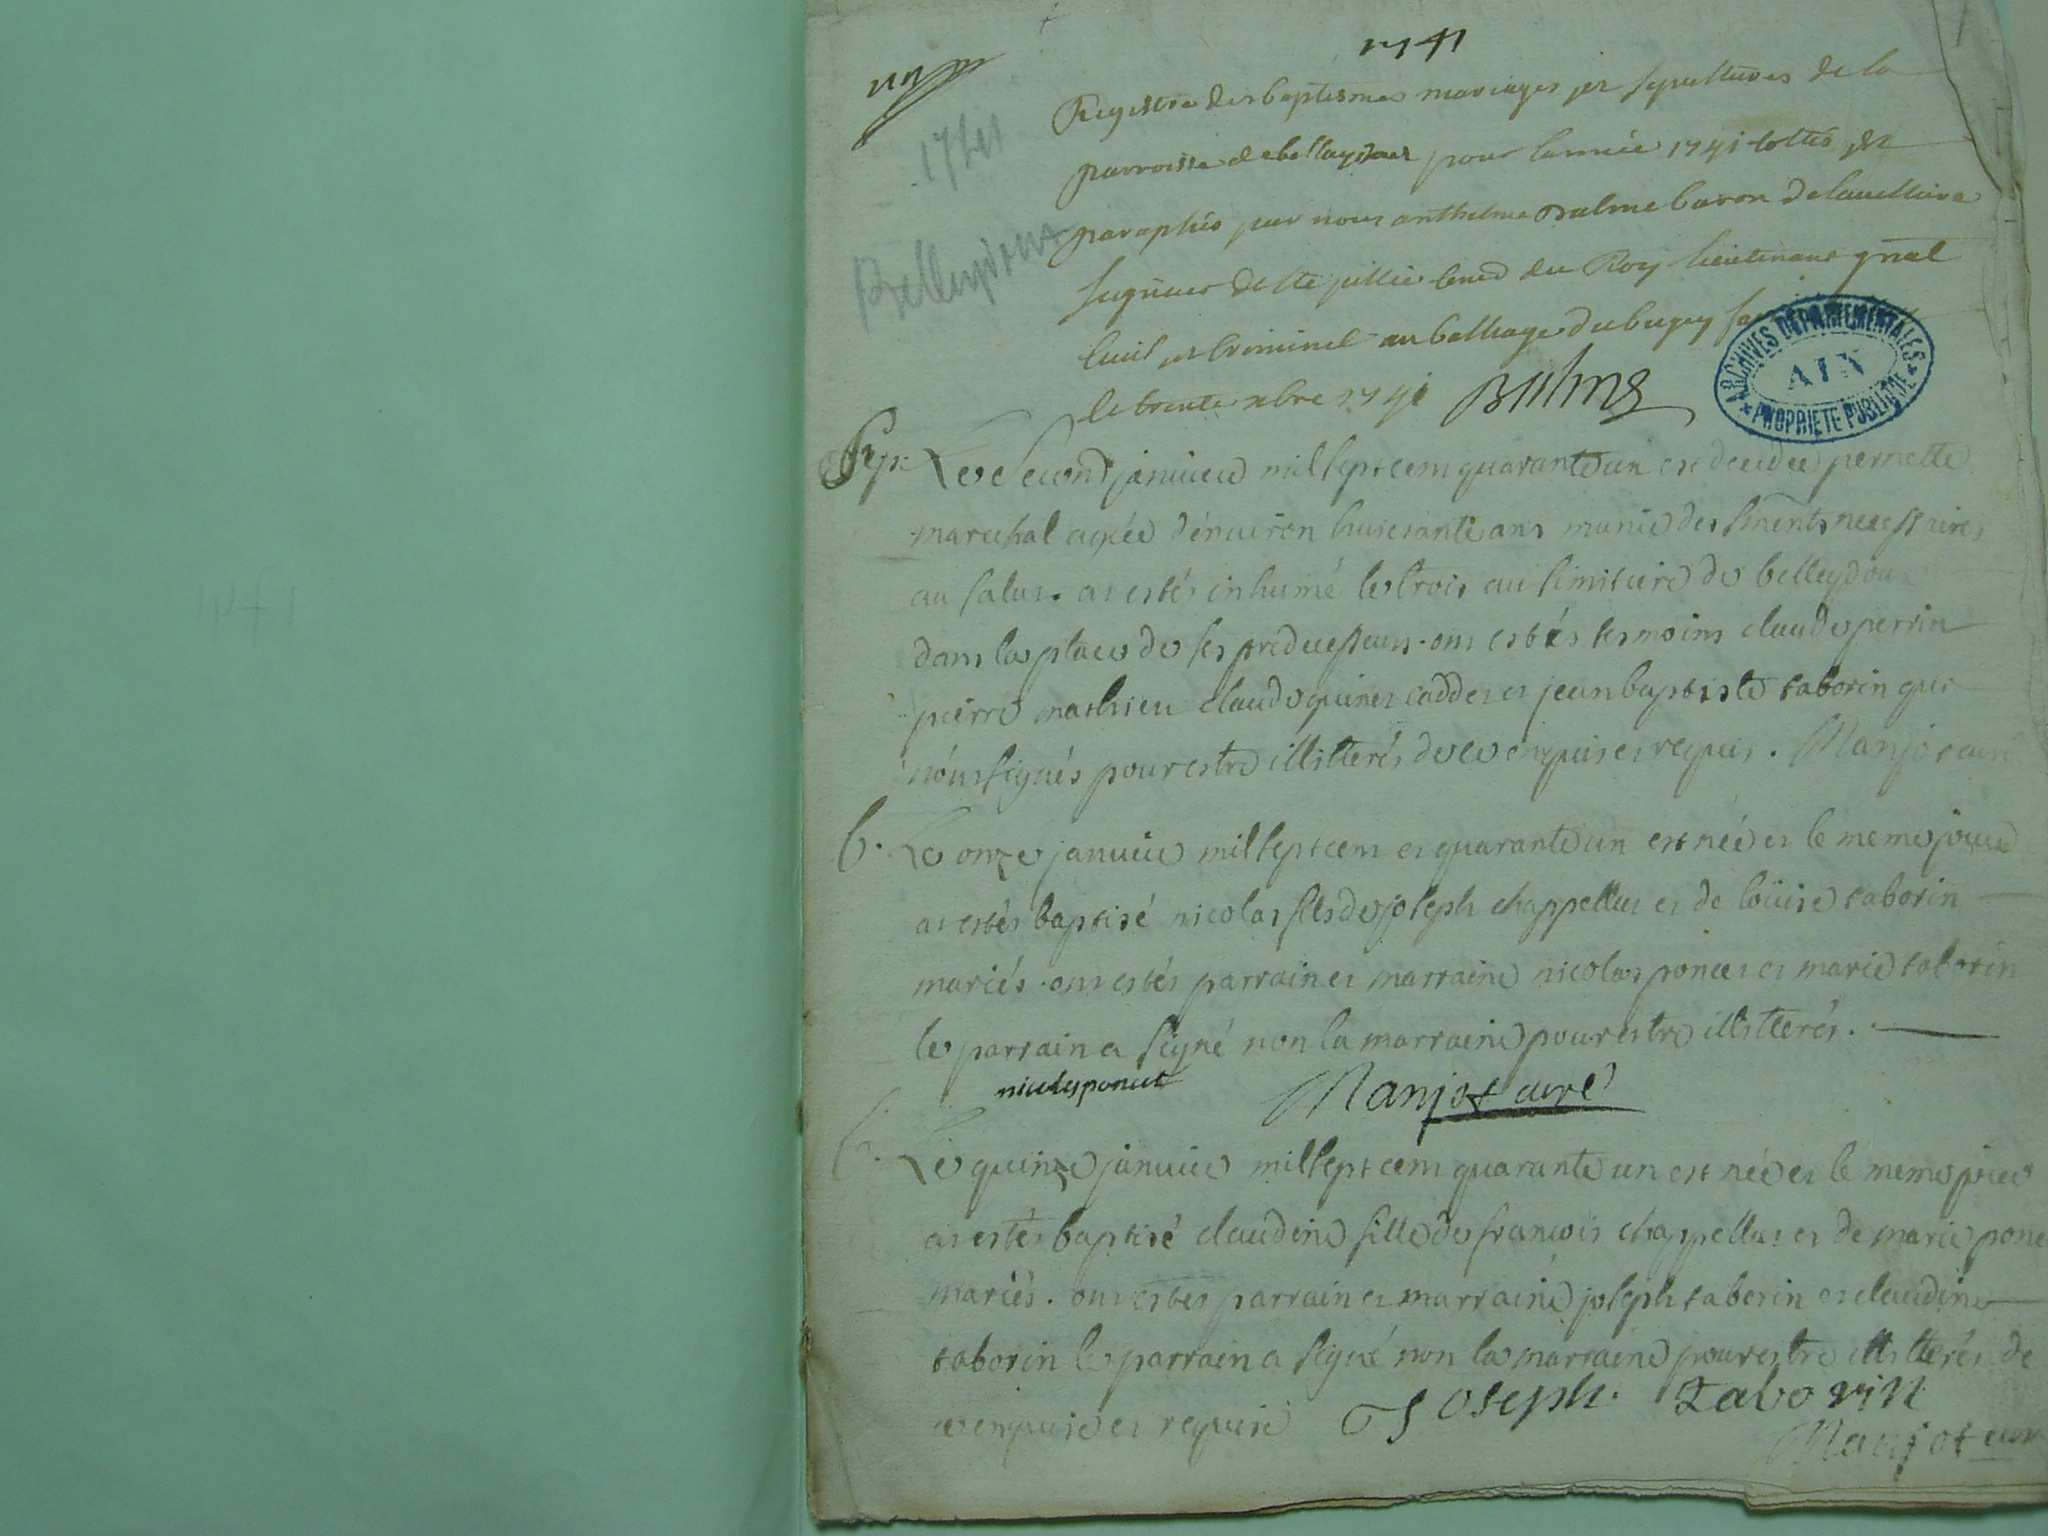 1741
Registre des baptesmes mariages et sepultures de la
parroisse de belleydoux pour l'année 1741 cottés et
paraphés par nous anthelme balme baron de
seigneur de Ste jullie du Roy lieutenant gnal
civil et criminel au balliage du bugey
le trente xbre 1741 Balme
1741
Belleydoux
ARCHIVES DÉPARTEMENTALES
AIN
PROPRIÉTÉ PUBLIQUE
Le second janvier mil sept cent quarante un est decedee pernette
marechal agée d'environ huitante ans munie des sments necessaires
au salut. at estés inhumé le trois au simitiere de belleydoux
dans la place de ses predecesseurs. ont estés tesmoins claude perrin
pierre mathieu claude et jean baptiste taborin qui
n'ont signés pour estre illitterés de ce enquis et requis. Manjot curé
b. Le onze janvier mil sept cent et quarante un est née et le meme jour
at estés baptisé nicolas fils de joseph chappellus et de loüise taborin
mariés. ont estés parrain et marraine nicolas poncet et marie taborin
le parrain a signé non la marraine pour estre illitterés.
nicolas poncet Manjot curé
b. Le quinze janvier mil sept cent quarante un est née et le meme jour
at estés baptisé claudine fille de françois chappellus et de marie ponc
mariés. ont estés parrain et marraine joseph taborin et claudine
taborin le parrain a signé non la marraine pour estre illitterés de
ce enquise et requise Joseph. Taborin
Manjot cur